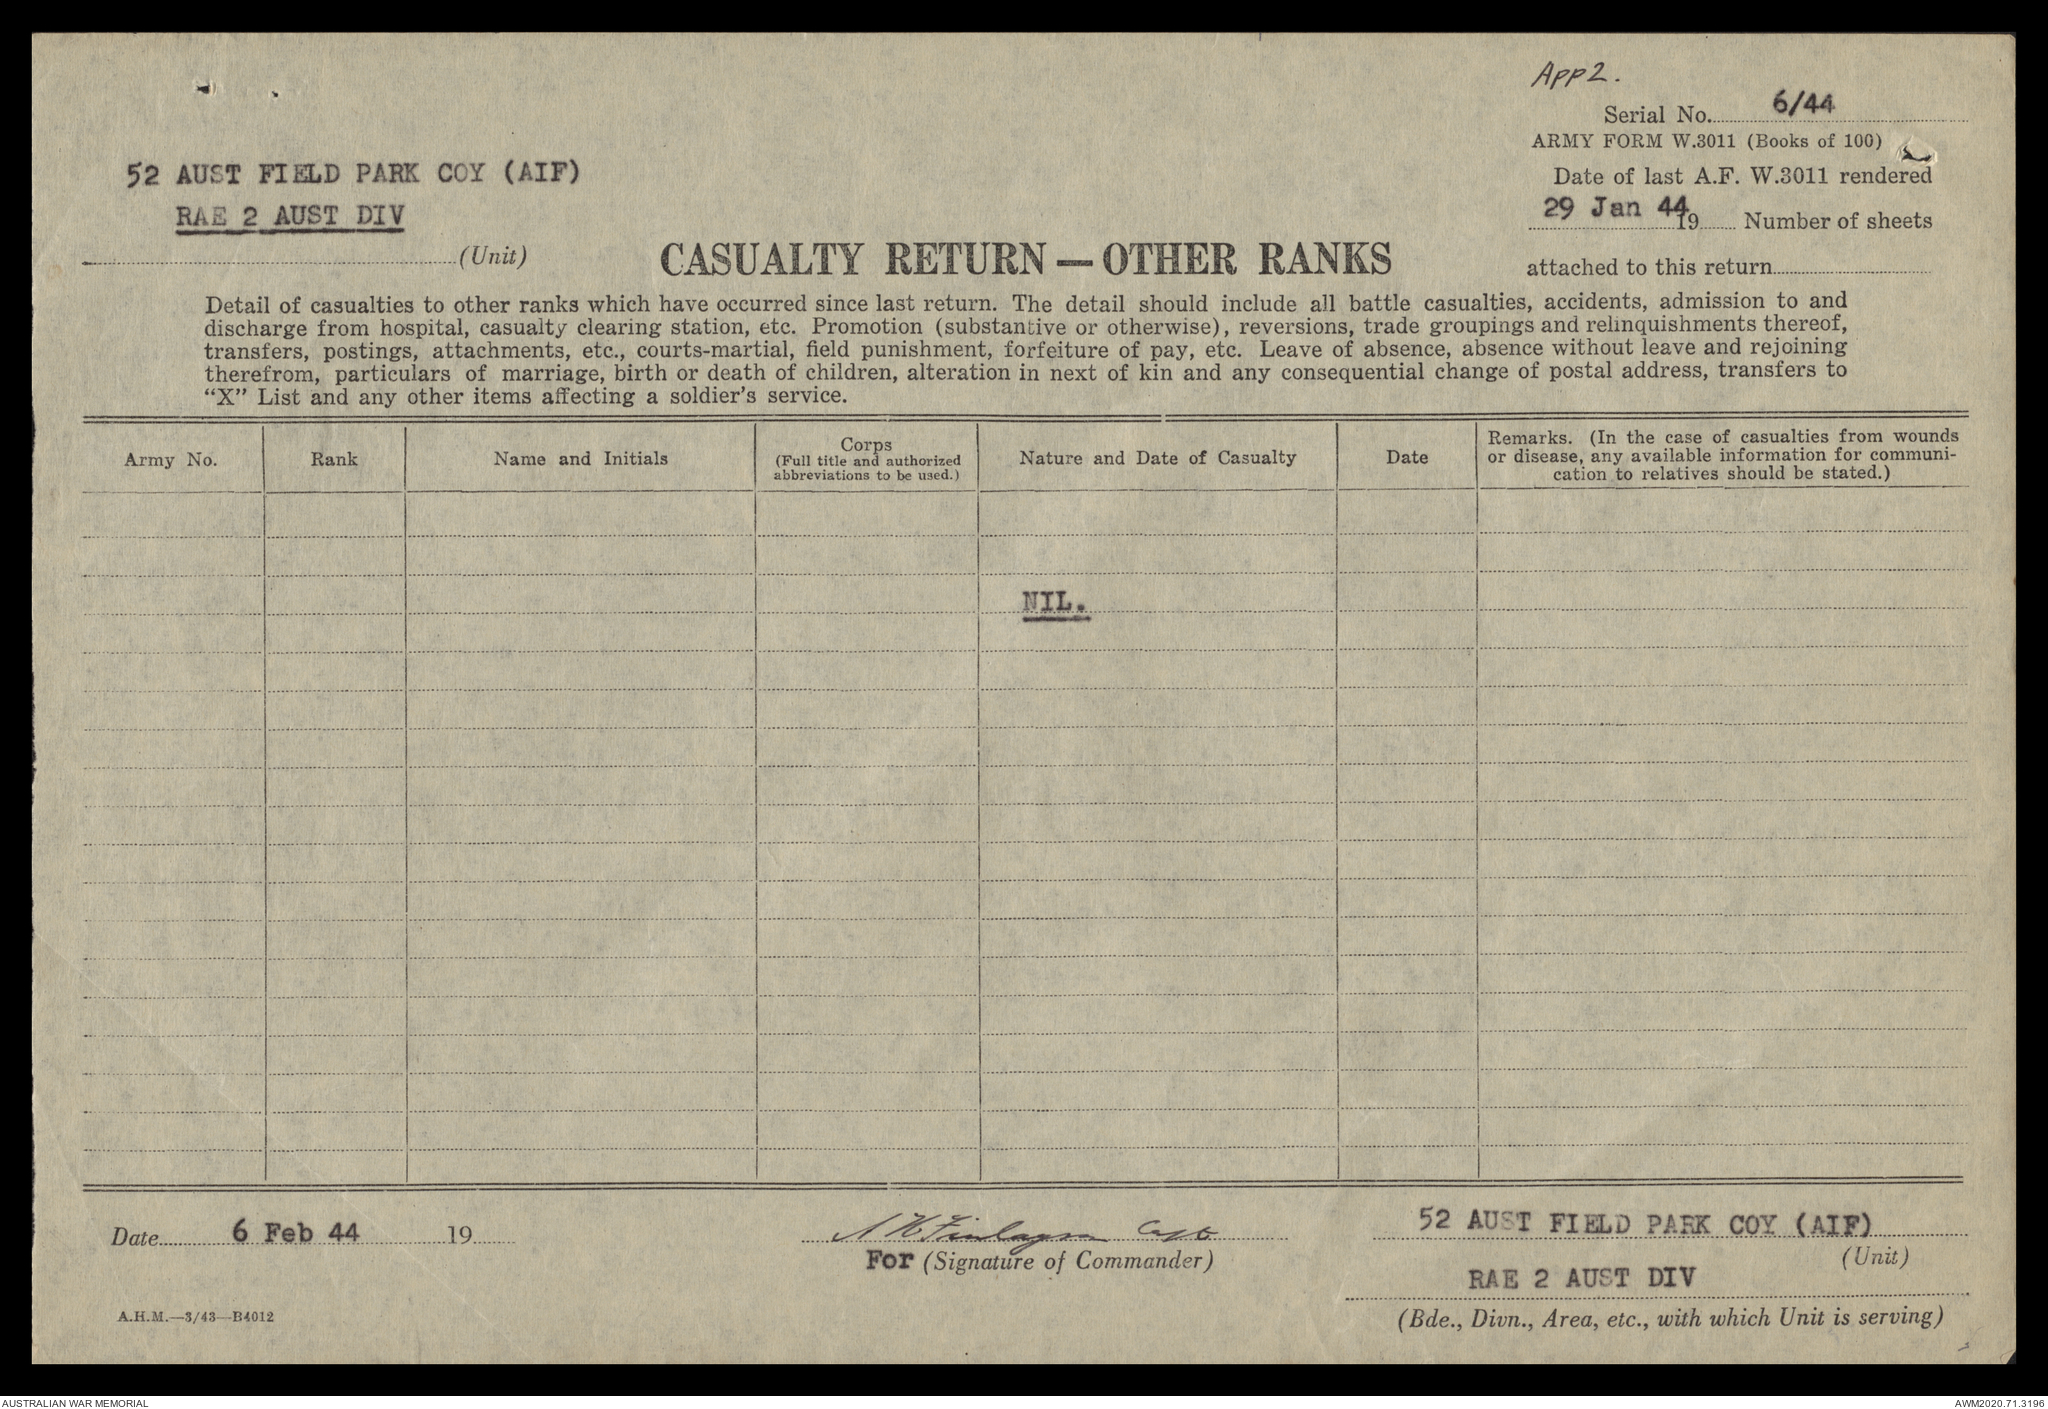 App 2.
Serial No. 6/44
ARMY FORM W.3011 (Books of 100)
52 AUST FIELD PARK COY (AIF)
Date of last A.F. W.3011 rendered
RAE 2 AUST DIV
29 Jan 44 19 Number of sheets
(Unit)
CASUALTY RETURN — OTHER RANKS
attached to this return
Detail of casualties to other ranks which have occurred since last return. The detail should include all battle casualties, accidents, admission to and
discharge from hospital, casualty clearing station, etc. Promotion (substantive or otherwise), reversions, trade groupings and relinquishments thereof,
transfers, postings, attachments, etc., courts-martial, field punishment, forfeiture of pay, etc. Leave of absence, absence without leave and rejoining
therefrom, particulars of marriage, birth or death of children, alteration in next of kin and any consequential change of postal address, transfers to
“X” List and any other items affecting a soldier's service.
Army No.
Rank
Name and Initials
Corps
(Full title and authorized
abbreviations to be used.)
Nature and Date of Casualty
Date
Remarks. (In the case of casualties from wounds
or disease, any available information for communi-
cation to relatives should be stated.)
NIL.
Date 6 Feb 44 19
Finlayson Capt
For (Signature of Commander)
52 AUST FIELD PARK COY (AIF)
(Unit)
RAE 2 AUST DIV
(Bde., Divn., Area, etc., with which Unit is serving)
A.H.M.—3/43—B4012
AUSTRALIAN WAR MEMORIAL
AWM2020.71.3196